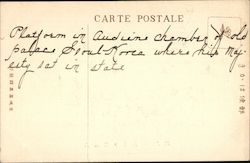 CARTE POSTALE
Platform in Audiene chamber of old
palace Seoul Korea where his Maj-
esty sat in state